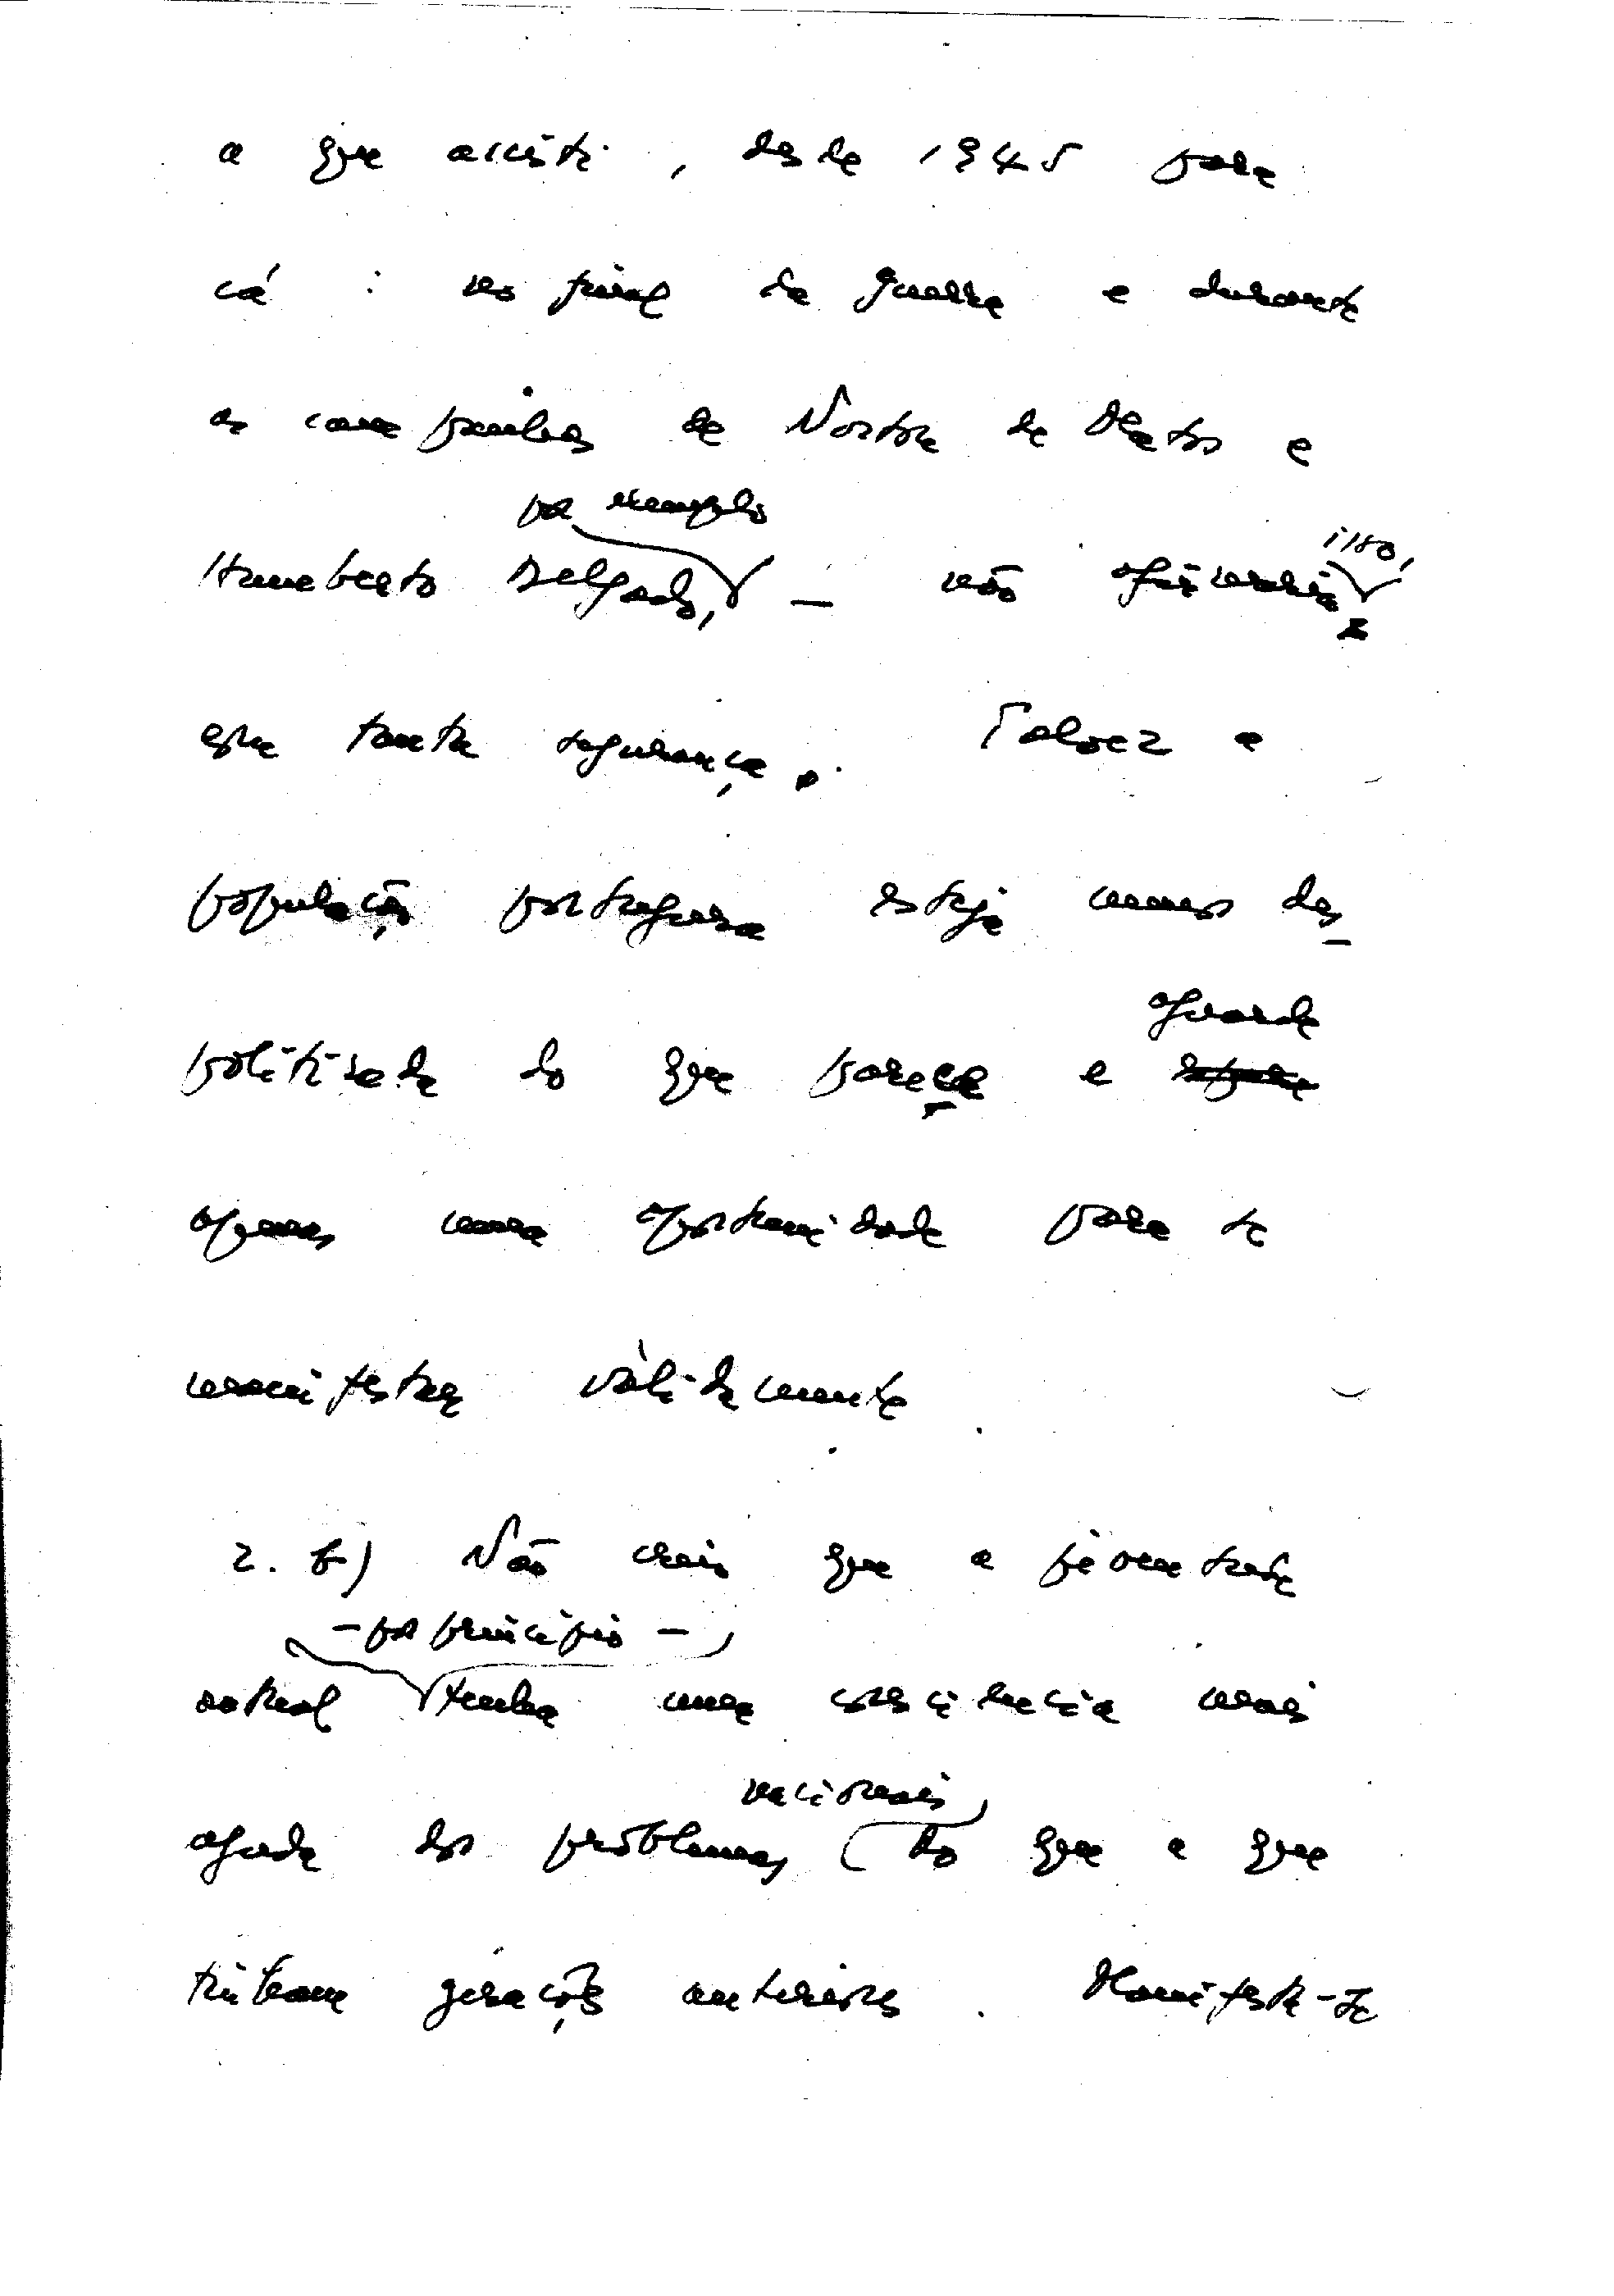 a que assisti, desde 1945 para
cá: no final da guerra e durante
as campanhas de Norton de Matos e
por exemplo
Humberto Delgado, — não afirmaria isso,
com tanta segurança. Talvez a
população portuguesa esteja menos des-
aguarde
politizada do que parece e espere
apenas uma oportunidade para se
manifestar vàlidamente.
2. b) Não creio que a juventude
— por princípio —
actual tenha uma consciência mais
nacionais
aguda dos problemas do que a que
tinham gerações anteriores. Manifesta-se